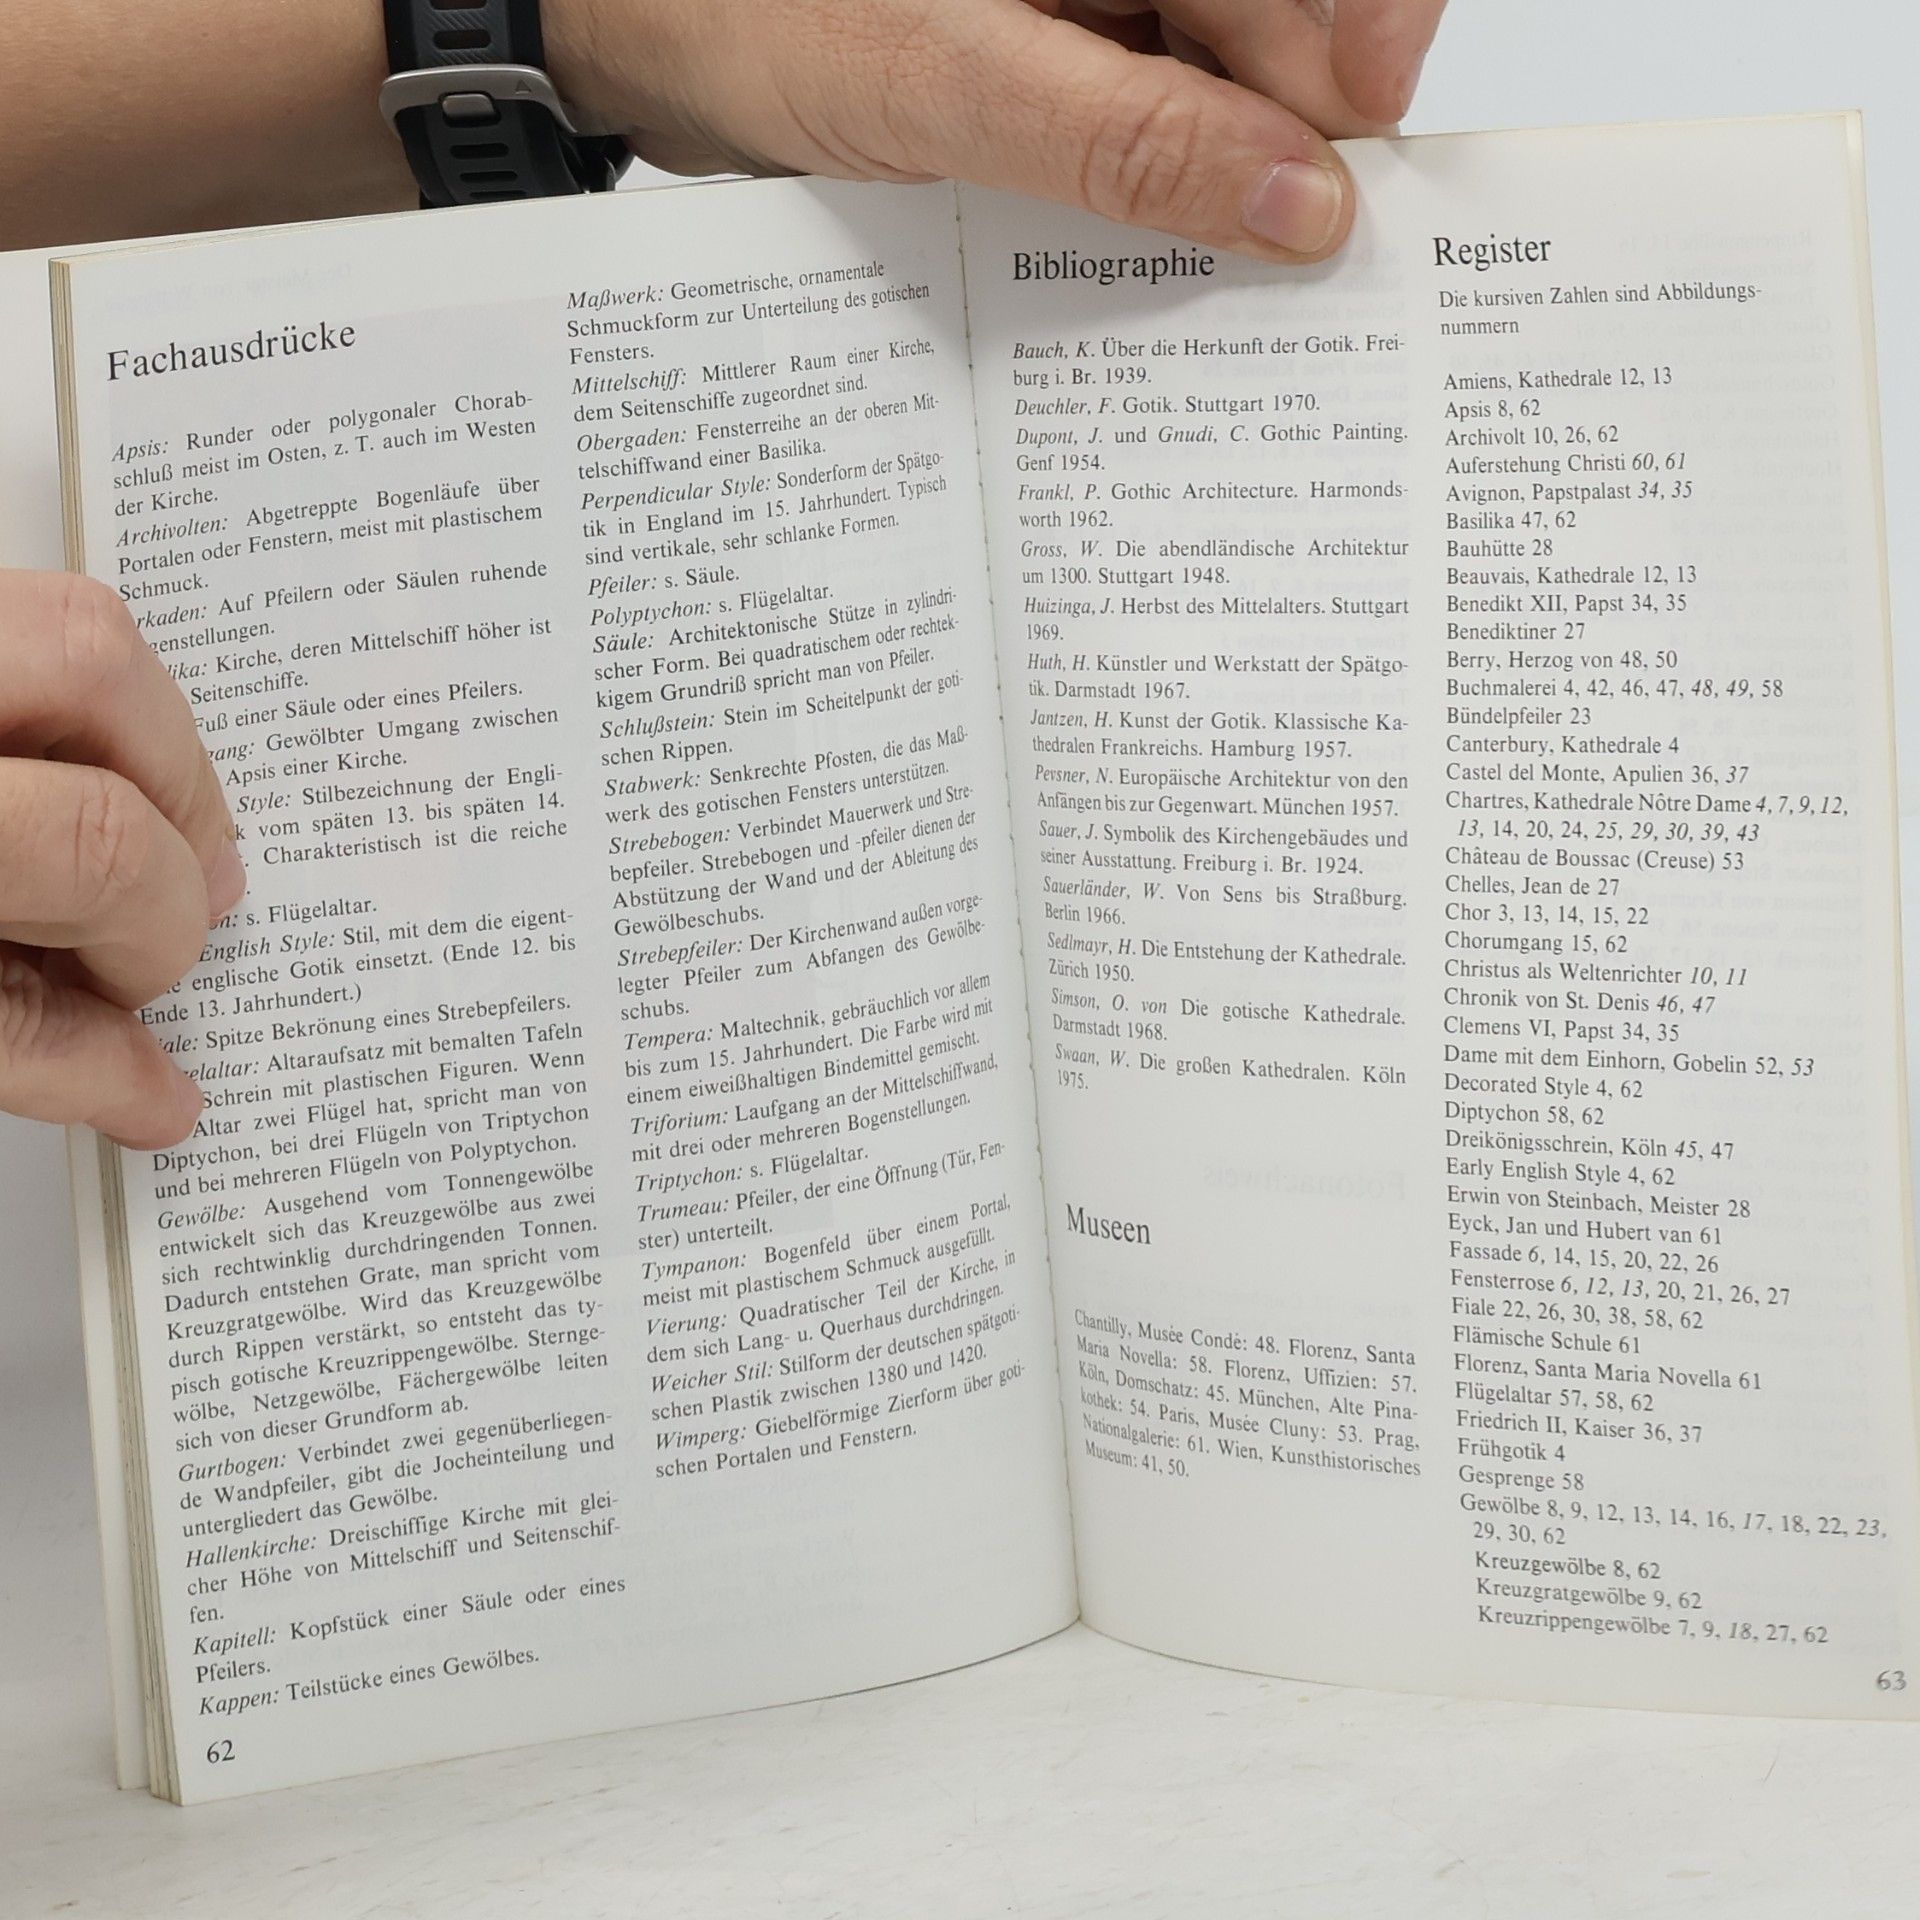 Fachausdrücke
Apsis: Runder oder polygonaler Chorab-
schluß meist im Osten, z. T. auch im Westen
der Kirche.
Archivolten: Abgetreppte Bogenläufe über
Portalen oder Fenstern, meist mit plastischem
Schmuck.
rkaden: Auf Pfeilern oder Säulen ruhende
genstellungen.
lika: Kirche, deren Mittelschiff höher ist
Seitenschiffe.
Fuß einer Säule oder eines Pfeilers.
gang: Gewölbter Umgang zwischen
Apsis einer Kirche.
Style: Stilbezeichnung der Engli-
k vom späten 13. bis späten 14.
. Charakteristisch ist die reiche
.
n: s. Flügelaltar.
English Style: Stil, mit dem die eigent-
e englische Gotik einsetzt. (Ende 12. bis
Ende 13. Jahrhundert.)
iale: Spitze Bekrönung eines Strebepfeilers.
elaltar: Altaraufsatz mit bemalten Tafeln
Schrein mit plastischen Figuren. Wenn
Altar zwei Flügel hat, spricht man von
Diptychon, bei drei Flügeln von Triptychon
und bei mehreren Flügeln von Polyptychon.
Gewölbe: Ausgehend vom Tonnengewölbe
entwickelt sich das Kreuzgewölbe aus zwei
sich rechtwinklig durchdringenden Tonnen.
Dadurch entstehen Grate, man spricht vom
Kreuzgratgewölbe. Wird das Kreuzgewölbe
durch Rippen verstärkt, so entsteht das ty-
pisch gotische Kreuzrippengewölbe. Sternge-
wölbe, Netzgewölbe, Fächergewölbe leiten
sich von dieser Grundform ab.
Gurtbogen: Verbindet zwei gegenüberliegen-
de Wandpfeiler, gibt die Jocheinteilung und
untergliedert das Gewölbe.
Hallenkirche: Dreischiffige Kirche mit glei-
cher Höhe von Mittelschiff und Seitenschif-
fen.
Kapitell: Kopfstück einer Säule oder eines
Pfeilers.
Kappen: Teilstücke eines Gewölbes.
62
Maßwerk: Geometrische, ornamentale
Schmuckform zur Unterteilung des gotischen
Fensters.
Mittelschiff: Mittlerer Raum einer Kirche,
dem Seitenschiffe zugeordnet sind.
Obergaden: Fensterreihe an der oberen Mit-
telschiffwand einer Basilika.
Perpendicular Style: Sonderform der Spätgo-
tik in England im 15. Jahrhundert. Typisch
sind vertikale, sehr schlanke Formen.
Pfeiler: s. Säule.
Polyptychon: s. Flügelaltar.
Säule: Architektonische Stütze in zylindri-
scher Form. Bei quadratischem oder rechtek-
kigem Grundriß spricht man von Pfeiler.
Schlußstein: Stein im Scheitelpunkt der goti-
schen Rippen.
Stabwerk: Senkrechte Pfosten, die das Maß-
werk des gotischen Fensters unterstützen.
Strebebogen: Verbindet Mauerwerk und Stre-
bepfeiler. Strebebogen und -pfeiler dienen der
Abstützung der Wand und der Ableitung des
Gewölbeschubs.
Strebepfeiler: Der Kirchenwand außen vorge-
legter Pfeiler zum Abfangen des Gewölbe-
schubs.
Tempera: Maltechnik, gebräuchlich vor allem
bis zum 15. Jahrhundert. Die Farbe wird mit
einem eiweißhaltigen Bindemittel gemischt.
Triforium: Laufgang an der Mittelschiffwand,
mit drei oder mehreren Bogenstellungen.
Triptychon: s. Flügelaltar.
Trumeau: Pfeiler, der eine Öffnung (Tür, Fen-
ster) unterteilt.
Tympanon: Bogenfeld über einem Portal,
meist mit plastischem Schmuck ausgefüllt.
Vierung: Quadratischer Teil der Kirche, in
dem sich Lang- u. Querhaus durchdringen.
Weicher Stil: Stilform der deutschen spätgoti-
schen Plastik zwischen 1380 und 1420.
Wimperg: Giebelförmige Zierform über goti-
schen Portalen und Fenstern.
Bibliographie
Bauch, K. Über die Herkunft der Gotik. Frei-
burg i. Br. 1939.
Deuchler, F. Gotik. Stuttgart 1970.
Dupont, J. und Gnudi, C. Gothic Painting.
Genf 1954.
Frankl, P. Gothic Architecture. Harmonds-
worth 1962.
Gross, W. Die abendländische Architektur
um 1300. Stuttgart 1948.
Huizinga, J. Herbst des Mittelalters. Stuttgart
1969.
Huth, H. Künstler und Werkstatt der Spätgo-
tik. Darmstadt 1967.
Jantzen, H. Kunst der Gotik. Klassische Ka-
thedralen Frankreichs. Hamburg 1957.
Pevsner, N. Europäische Architektur von den
Anfängen bis zur Gegenwart. München 1957.
Sauer, J. Symbolik des Kirchengebäudes und
seiner Ausstattung. Freiburg i. Br. 1924.
Sauerländer, W. Von Sens bis Straßburg.
Berlin 1966.
Sedlmayr, H. Die Entstehung der Kathedrale.
Zürich 1950.
Simson, O. von Die gotische Kathedrale.
Darmstadt 1968.
Swaan, W. Die großen Kathedralen. Köln
1975.
Museen
Chantilly, Musée Condé: 48. Florenz, Santa
Maria Novella: 58. Florenz, Uffizien: 57.
Köln, Domschatz: 45. München, Alte Pina-
kothek: 54. Paris, Musée Cluny: 53. Prag,
Nationalgalerie: 61. Wien, Kunsthistorisches
Museum: 41, 50.
Register
Die kursiven Zahlen sind Abbildungs-
nummern
Amiens, Kathedrale 12, 13
Apsis 8, 62
Archivolt 10, 26, 62
Auferstehung Christi 60, 61
Avignon, Papstpalast 34, 35
Basilika 47, 62
Bauhütte 28
Beauvais, Kathedrale 12, 13
Benedikt XII, Papst 34, 35
Benediktiner 27
Berry, Herzog von 48, 50
Buchmalerei 4, 42, 46, 47, 48, 49, 58
Bündelpfeiler 23
Canterbury, Kathedrale 4
Castel del Monte, Apulien 36, 37
Chartres, Kathedrale Nôtre Dame 4, 7, 9, 12,
13, 14, 20, 24, 25, 29, 30, 39, 43
Château de Boussac (Creuse) 53
Chelles, Jean de 27
Chor 3, 13, 14, 15, 22
Chorumgang 15, 62
Christus als Weltenrichter 10, 11
Chronik von St. Denis 46, 47
Clemens VI, Papst 34, 35
Dame mit dem Einhorn, Gobelin 52, 53
Decorated Style 4, 62
Diptychon 58, 62
Dreikönigsschrein, Köln 45, 47
Early English Style 4, 62
Erwin von Steinbach, Meister 28
Eyck, Jan und Hubert van 61
Fassade 6, 14, 15, 20, 22, 26
Fensterrose 6, 12, 13, 20, 21, 26, 27
Fiale 22, 26, 30, 38, 58, 62
Flämische Schule 61
Florenz, Santa Maria Novella 61
Flügelaltar 57, 58, 62
Friedrich II, Kaiser 36, 37
Frühgotik 4
Gesprenge 58
Gewölbe 8, 9, 12, 13, 14, 16, 17, 18, 22, 23,
29, 30, 62
Kreuzgewölbe 8, 62
Kreuzgratgewölbe 9, 62
Kreuzrippengewölbe 7, 9, 18, 27, 62
63